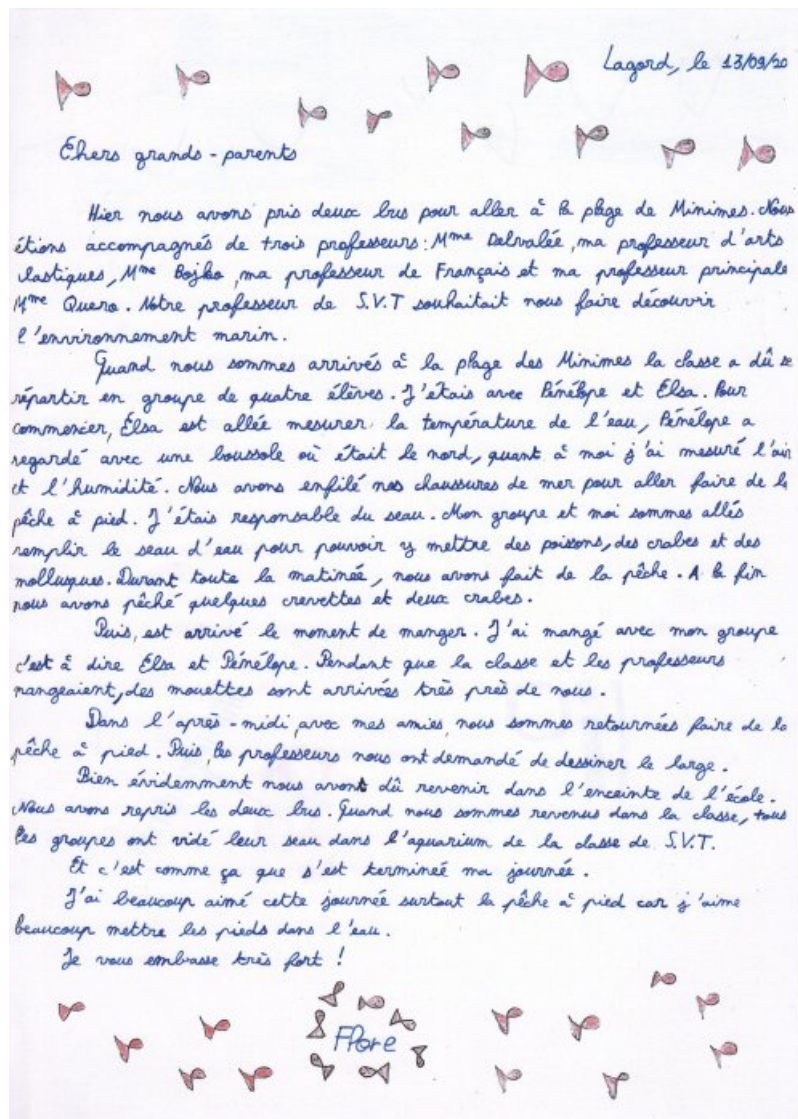 Lagord, le 13/09/20
Chers grands-parents
Hier nous avons pris deux bus pour aller à la plage de Minimes. Nous
étions accompagnés de trois professeurs: Mme Delvalée, ma professeur d'arts
lastiques, Mme Bojko, ma professeur de Français et ma professeur principale
Mme Quero. Notre professeur de S.V.T souhaitait nous faire découvrir
l'environnement marin.
Quand nous sommes arrivés à la plage des Minimes la classe a dû se
répartir en groupe de quatre élèves. J'étais avec Pénélope et Elsa. Pour
commencer, Elsa est allée mesurer la température de l'eau, Pénélope a
regardé avec une boussole où était le nord, quant à moi j'ai mesuré l'air
et l'humidité. Nous avons enfilé nos chaussures de mer pour aller faire de la
pêche à pied. J'étais responsable du seau. Mon groupe et moi sommes allés
remplir le seau d'eau pour pouvoir y mettre des poissons, des crabes et des
mollusques. Durant toute la matinée, nous avons fait de la pêche. A la fin
nous avons pêché quelques crevettes et deux crabes.
Puis, est arrivé le moment de manger. J'ai mangé avec mon groupe
c'est à dire Elsa et Pénélope. Pendant que la classe et les professeurs
mangeaient, des mouettes sont arrivées très près de nous.
Dans l'après-midi, avec mes amies, nous sommes retournées faire de la
pêche à pied. Puis, les professeurs nous ont demandé de dessiner le large.
Bien évidemment nous avons dû revenir dans l'enceinte de l'école.
Nous avons repris les deux bus. Quand nous sommes revenus dans la classe, tous
les groupes ont vidé leur seau dans l'aquarium de la classe de S.V.T.
Et c'est comme ça que s'est termineé ma journée.
J'ai beaucoup aimé cette journée surtout la pêche à pied car j'aime
beaucoup mettre les pieds dans l'eau.
Je vous embrasse très fort !
Flore